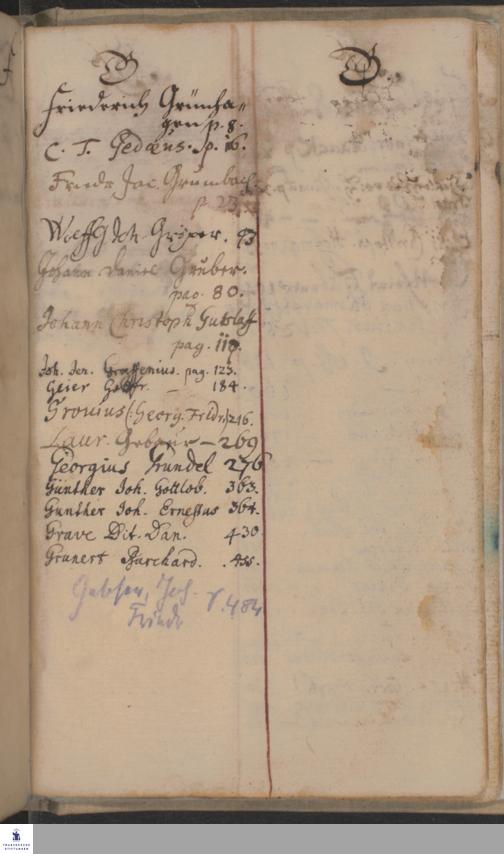 G
G.
Friederich Grünha„
gen p. 8.
C. T. Gedaeus. p. 16.
Friedr Jac. Grumbach.
p. 23
Joh. 93
Johann Daniel Gruber.
pag. 80.
Johann Christoph Gutslaff
pag. 119.
Joh. Jen. Graffenius. pag. 123.
Geier — 184.
Grovius (: Georg. Fridr:) 216.
Laur. Gebaur — 269
Georgius Grundel 276
Günther Joh. Gottlob. 363.
Gunther Joh. Ernestus 364.
Grave Dit. Dan. 430
Grunert Burchard. 455.
Joh.
Friedr 484
FRANCKESCHE
STIFTUNGEN